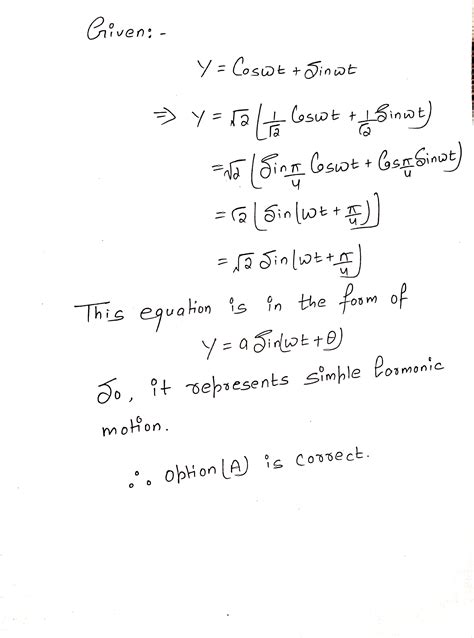 Given:-
Y = Coswt + Sinwt
⇒ Y = √2 (1/√2 Coswt + 1/√2 Sinwt)
= √2 (Sin π/4 Coswt + Cos π/4 Sinwt)
= √2 [Sin(wt + π/4)]
= √2 Sin(wt + π/4)
This equation is in the form of
Y = a Sin(wt + θ)
So, it represents simple harmonic
motion.
∴ option (A) is correct.